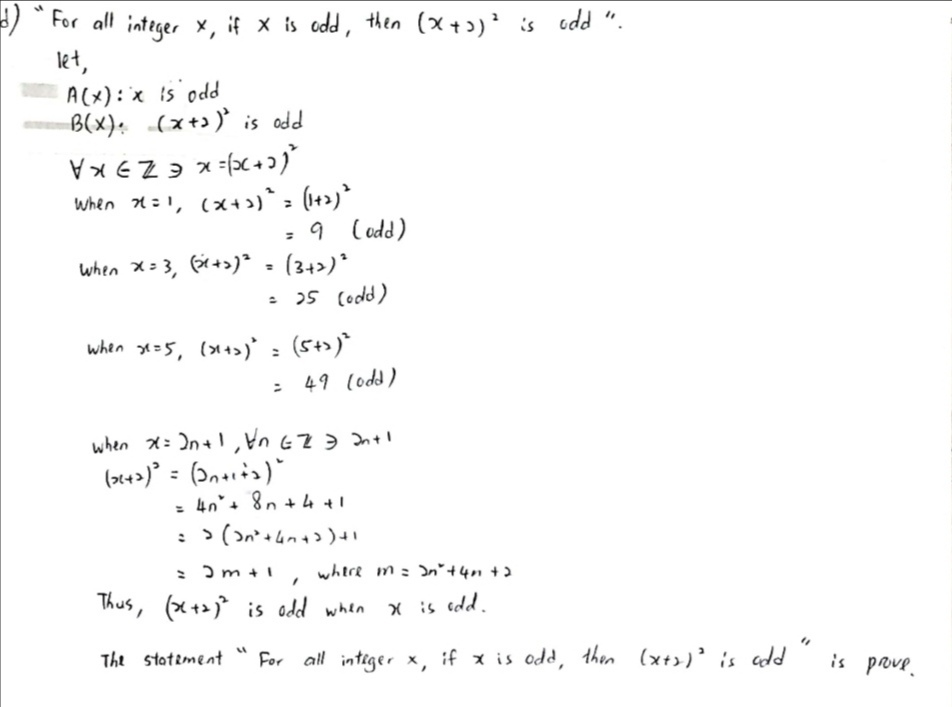 d) "For all integer x, if x is odd, then (x+2)² is odd".
let,
A(x): x is odd
B(x): (x+2)² is odd
∀x ∈ ℤ ∋ x = (x+2)²
When x=1, (x+2)² = (1+2)²
= 9 (odd)
When x=3, (x+2)² = (3+2)²
= 25 (odd)
when x=5, (x+2)² = (5+2)²
= 49 (odd)
when x= 2n+1, ∀n ∈ ℤ ∋ 2n+1
(x+2)² = (2n+1+2)²
= 4n² + 8n + 4 + 1
= 2(2n²+4n+2)+1
= 2m+1, where m = 2n²+4n+2
Thus, (x+2)² is odd when x is odd.
The statement "For all integer x, if x is odd, then (x+2)² is odd" is prove.